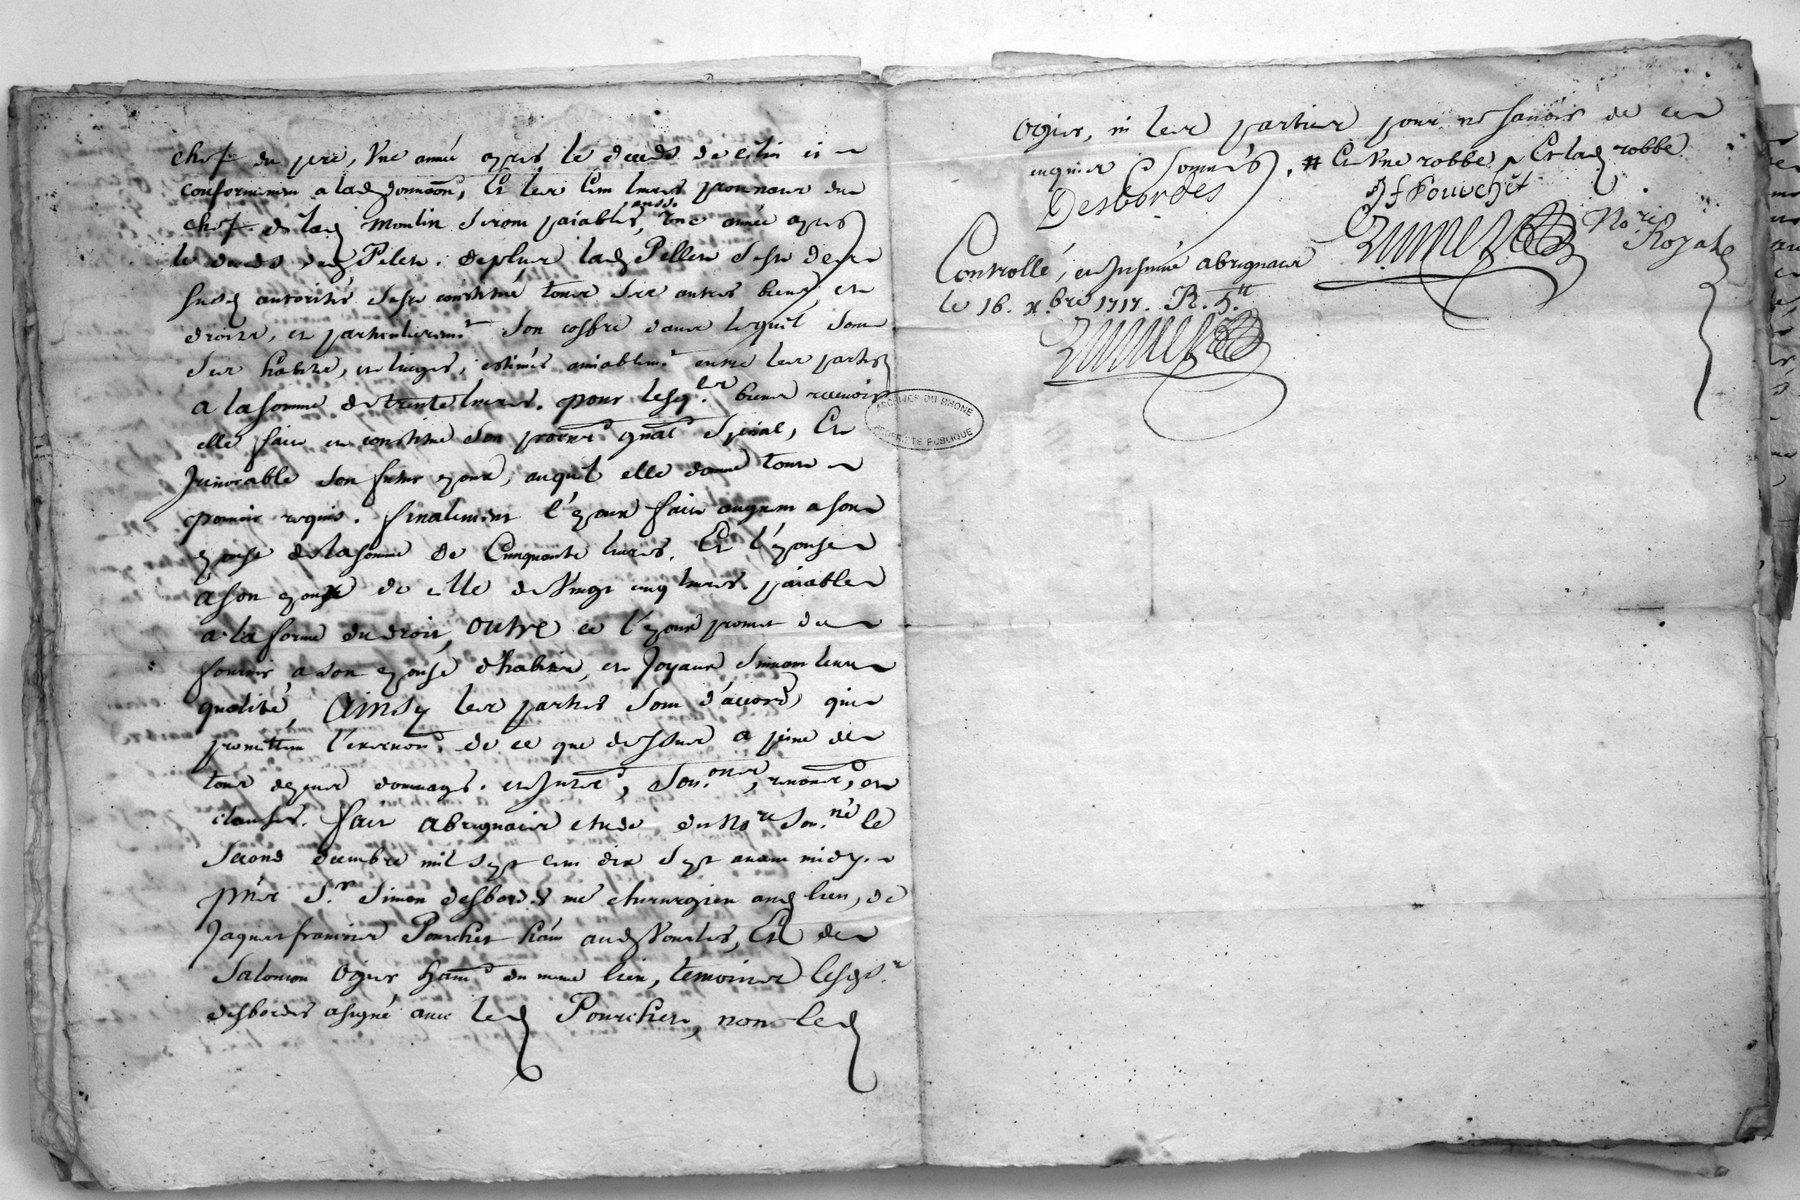 chef du pere, Vne année apres le deceds de celui ci
conformemen a lad donnaôn, Et les Cen livres prouenan du
chef de lad Moulin seron paiables, aussi vne année apres
le deceds dud Peleru. deplus lad Pelleru sest de
susd autorités sest constitué tous ses autres biens, et
droits, et particulierem.t son coffre dans lequel son
ses habits, et linges, estimés amiablem.t entre les parties
a la somme de trente livres. pour lesq.els biens recevoir
elle fait et constitue son procur gnal special, Et
Jrrevocable son futur epoux, auquel elle donne tout
pouvoir requis. finalement l'epoux fait augmen a son
epouse de la somme de Cinquante livres. Et l'epouse
a son epoux de celle de Vingt cinq livres paiables
a la forme du droit, outre ce l'epoux promet de
fournir a son epouse d'habits, et Joyaux suivan leur
qualité, Ainsy les parties son d'accord qui
promettem l'execuon, de ce que dessus a peine de
tous depens dommages. et Jnterets, Sou.ons, renonc, et
clauses. fait a Brignais etude du No.re sou.né le
second decembre mil sept cens dix sept avant midy.
pñts S.r Simon desbordes me chirurgien aud lieu, de
Jaques francois Pourchet habit aud Vourles, Et de
Salomon Ogier habit du meme lieu, temoins lesd s.r
desbordes a signé avec led Pourchet, non led
Ogier, ni les parties pour ne savoir de ce
enquis et sommés. # Et Vne robbe, # Et lad robbe
Desbordes
J f Pourchet
No.re Royal
Controllé, et Jnsinué a brignais
le 16. x.bre 1717. R. 5.tt
ARCHIVES DU RHONE
PROPRIETE PUBLIQUE